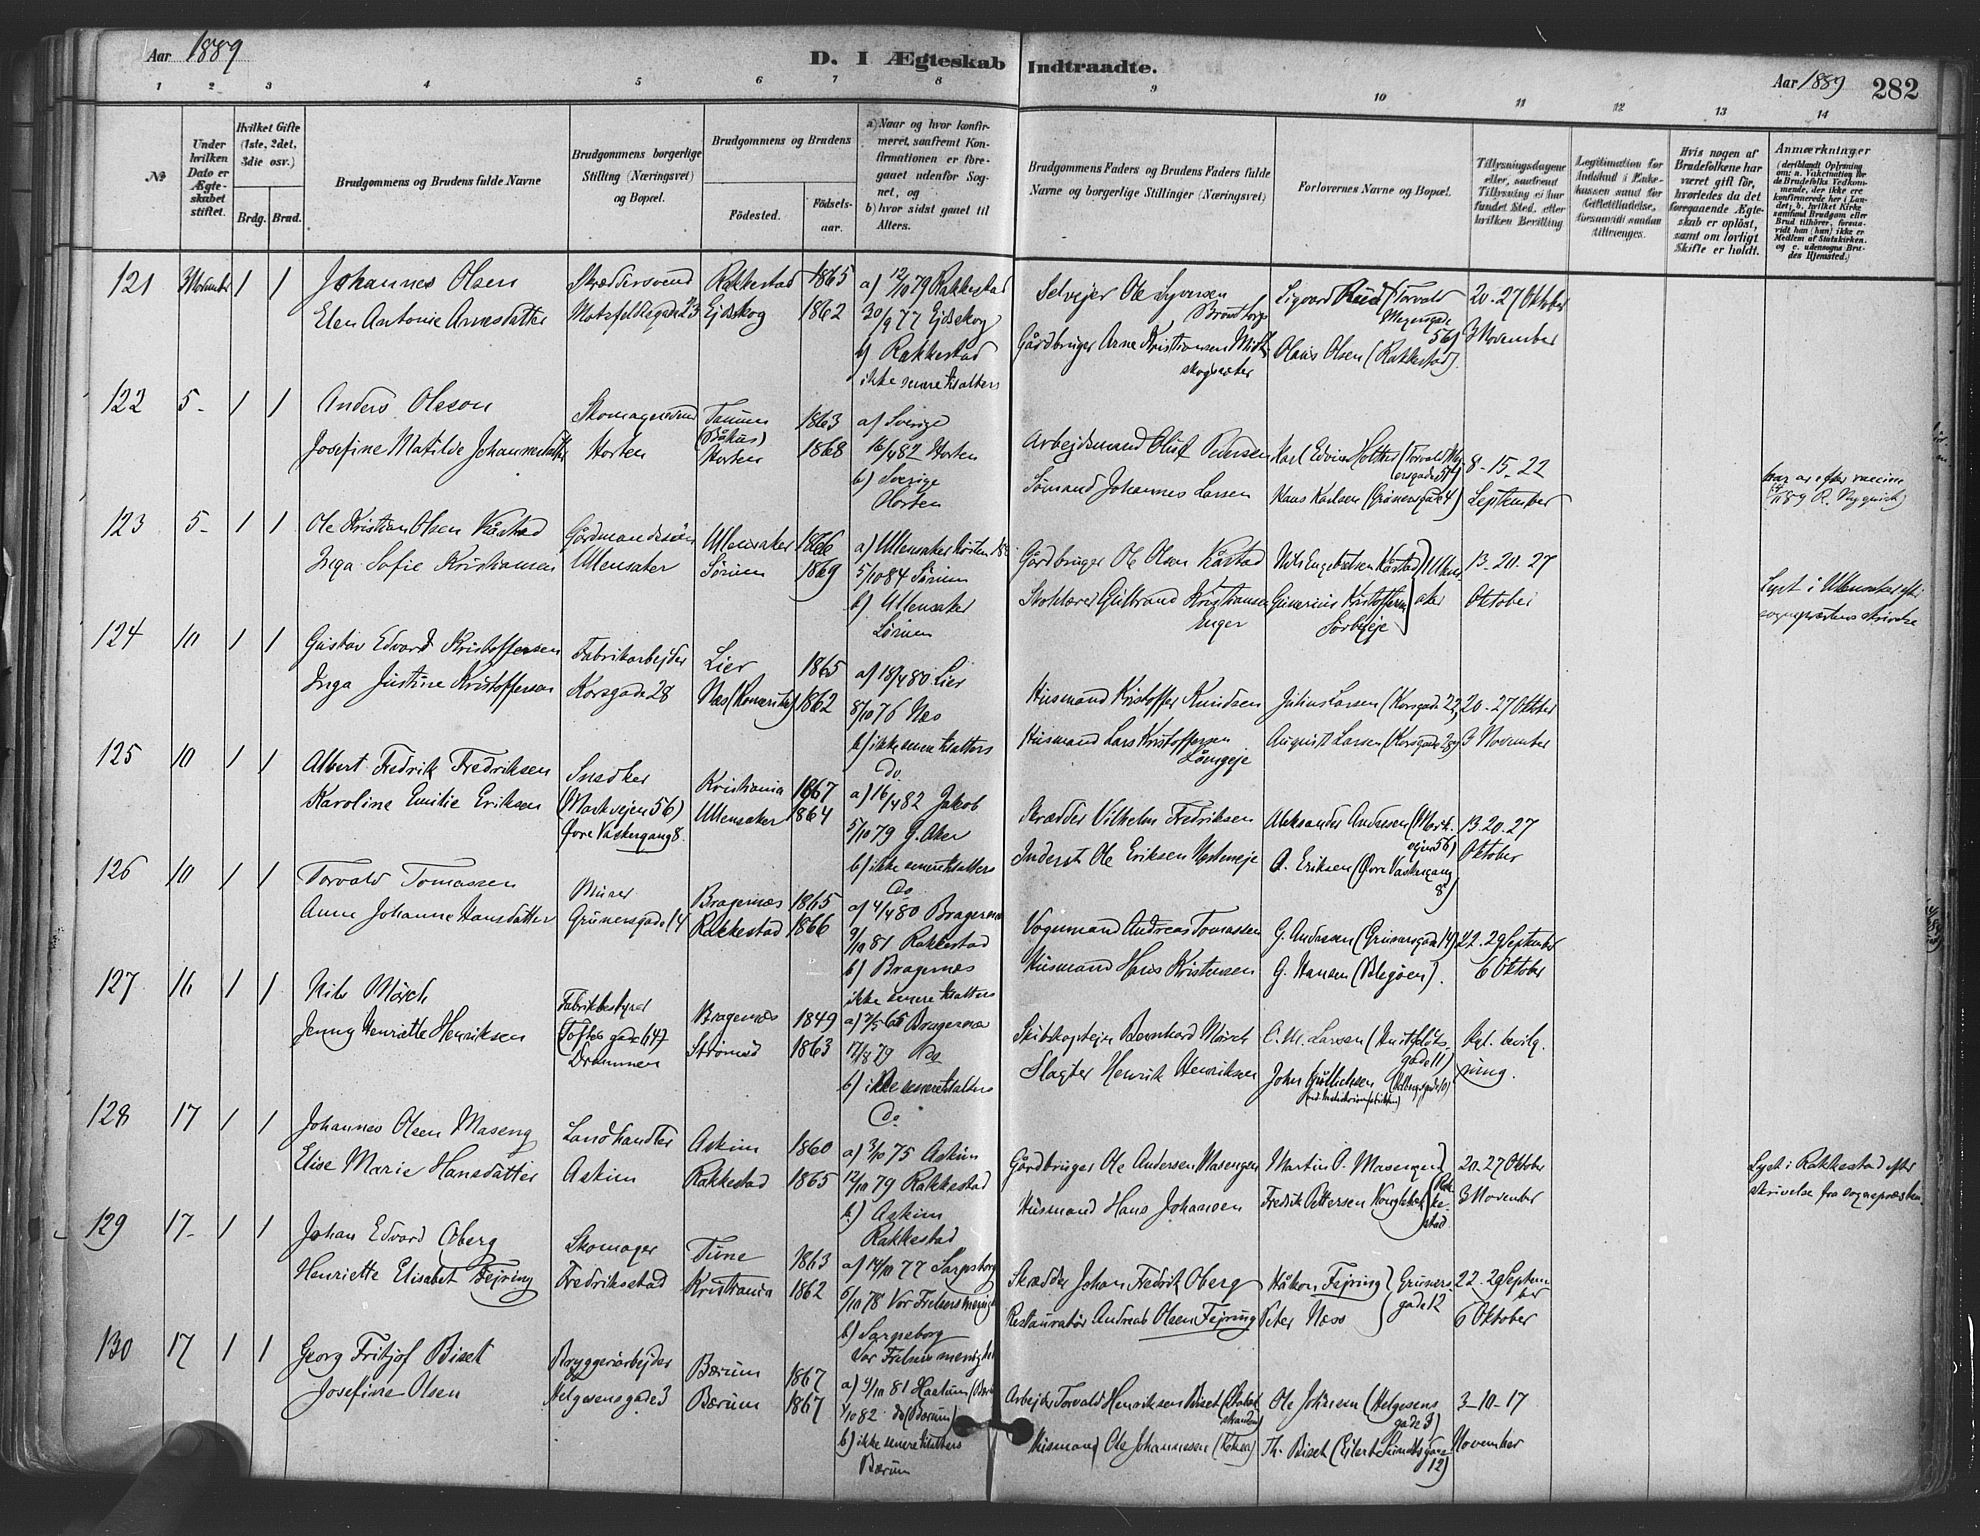 Aar 1889
D. I Ægteskab Indtraadte.
Aar 1889 282
1 2 3 4 5 6 7 8 9 10 11 12 13 14
No
Under hvilken Dato er Ægteskabet stiftet.
Hvilket Gifte (1ste, 2det, 3die osv.)
Brdg. Brud.
Brudgommens og Brudens fulde Navne
Brudgommens borgerlige Stilling (Næringsvei) og Bopæl.
Brudgommens og Brudens
Födested. Födsels-aar.
a) Naar og hvor konfirmeret, saafremt Konfirmationen er foregaaet udenfor Sognet, og
b) hvor sidst gaaet til Alters.
Brudgommens Faders og Brudens Faders fulde Navne og borgerlige Stillinger (Næringsvei)
Forlovernes Navne og Bopæl.
Tillysningsdagene eller, saafremt Tillysning ei har fundet Sted, efter hvilken Bevilling
Hvis nogen af Brudefolkene har været gift för, hvorledes da det foregaaende Ægteskab er oplöst, samt om lovligt Skifte er holdt.
Anmærkninger
121 3 November 1 1 Johannes Olsen Skræddersvend Rakkestad 1865 a) 12/10 79 Rakkestad
Elen Antonie Arnesdatter Motzfeldtsgade 23 Ejdskog 1862 30/9 77 Ejdskog
b) Rakkestad
ikke senere til alters
Selvejer Ole Syversen
Sigvard Ruud (Torvald Meyersgade 56) 20-27 Oktober
Gårdbruger Arne Kristiansen
Olaus Olsen (Rakkestad) 3 November
122 5- 1 1 Anders Olsson Skomagersvend Tanum (Båhus) 1863 a) Sverige
Josefine Matilde Johannesdatter Horten Horten 1868 16/4 82 Horten
b) Sverige
Horten
Arbejdsmand Oluf Pedersen Karl Edvin Holther (Torvald Meyersgade 54) 8-15-22
Sømand Johannes Larsen Hans Karlsen (Grünersgade 4) September
123 5- 1 1 Ole Kristian Olsen Kåstad Gårdmandssøn Ullensaker 1866 a) Ullensaker
Inga Sofie Kristiansen Ullensaker Sørum 1869 5/10 84 Sørum
b) Ullensaker
Sørum
Gårdbruger Ole Olsen Kåstad Nils Engebretsen Kåstad Ullensaker 13-20-27
Gulbrand Kristiansen Enger Gunerius Kristoffersen Oktober
Lyst i Ullensaker
124 10 1 1 Gustav Edvard Kristoffersen Fabrikarbejder Lier 1865 a) 18/4 80 Lier
Inga Justine Kristoffersen Korsgade 28 Næs (Romerike) 1862 8/10 76 Næs
b) ikke senere til alters
do
Husmand Kristoffer Knudsen Julius Larsen (Korsgade 22) 20-27 Oktober
Husmand Lars Kristoffersen August Larsen (Korsgade 28) 3 November
125 10 1 1 Albert Fredrik Fredriksen Snedker Kristiania 1867 a) 16/4 82 Jakob
Karoline Emilie Eriksen (Markvejen 56) Ullensaker 1864 5/10 79 G. Aker
Øvre Vaskergang 8. b) ikke senere til alters
Do
Skrædder Vilhelm Fredriksen Aleksander Andersen (Markvejen 56) 13-20-27
Inderst Ole Eriksen O. Eriksen (Øvre Vaskergang 8) Oktober
126 10 1 1 Torvald Tomassen Murer Bragernæs 1865 a) 4/4 80 Bragernæs
Anne Johanne Hansdatter Grünersgade 14 Rakkestad 1866 9/10 81 Rakkestad
b) Bragernæs
ikke senere til alters
Vognmand Andreas Tomassen G. Andersen (Grünersgade 14) 22-29 September
Husmand Hans Kristensen G. Hansen (Blegøen). 6 Oktober
127 16 1 1 Nils Mörch Fabrikbestyrer Bragernæs 1849 a) 7/5 65 Bragernæs
Jenny Henriette Henriksen (Toftes gade 47) Strømsö 1863 17/8 79 Do
Drammen b) ikke senere til alters
Do
Skibskaptejn Bernhard Mörch C. M. Larsen kgl. bevilgning.
Slagter Henrik Henriksen John Gulliksen
128 17 1 1 Johannes Olsen Maseng Landhandler Askim 1860 a) 3/10 75 Askim
Elise Marie Hansdatter Askim Rakkestad 1865 12/10 79 Rakkestad
b) Askim
Rakkestad
Gårdbruger Ole Andersen Masengen Martin O. Masengen Rakkestad 20-27 Oktober
Husmand Hans Johansen Fredrik Pettersen 3 November
Lyst i Rakkestad efter skrivelse fra sognepræsten
129 17- 1 1 Johan Edvard Oberg Skomager Tune 1863 a) 14/10 77 Sarpsborg
Henriette Elisabet Fejring Fredriksstad Kristiania 1862 6/10 78 Vor Frelsers menighed
b) Sarpsborg
Vor Frelsers menighed
Skrædder Johan Fredrik Oberg Håkon Fejring Grünersgade 12 22-29 September
Restauratør Andreas Olsen Fejring Peter Næss 6 Oktober
130 17 1 1 Georg Fritjof Biset Bryggeriarbejder Bærum 1867 a) 9/10 81 Haslum (Bærum)
Josefine Olsen Helgesensgade 3 Bærum 1867 1/10 82 do (Bærum)
b) ikke senere til alters
Bærum
Arbejder Torvald Henriksen Biset Ole Johnsen (Helgesens gade 3) 3-10-17
Husmand Ole Johannesen Th. Biset (Eilert Sundts gade 12) November